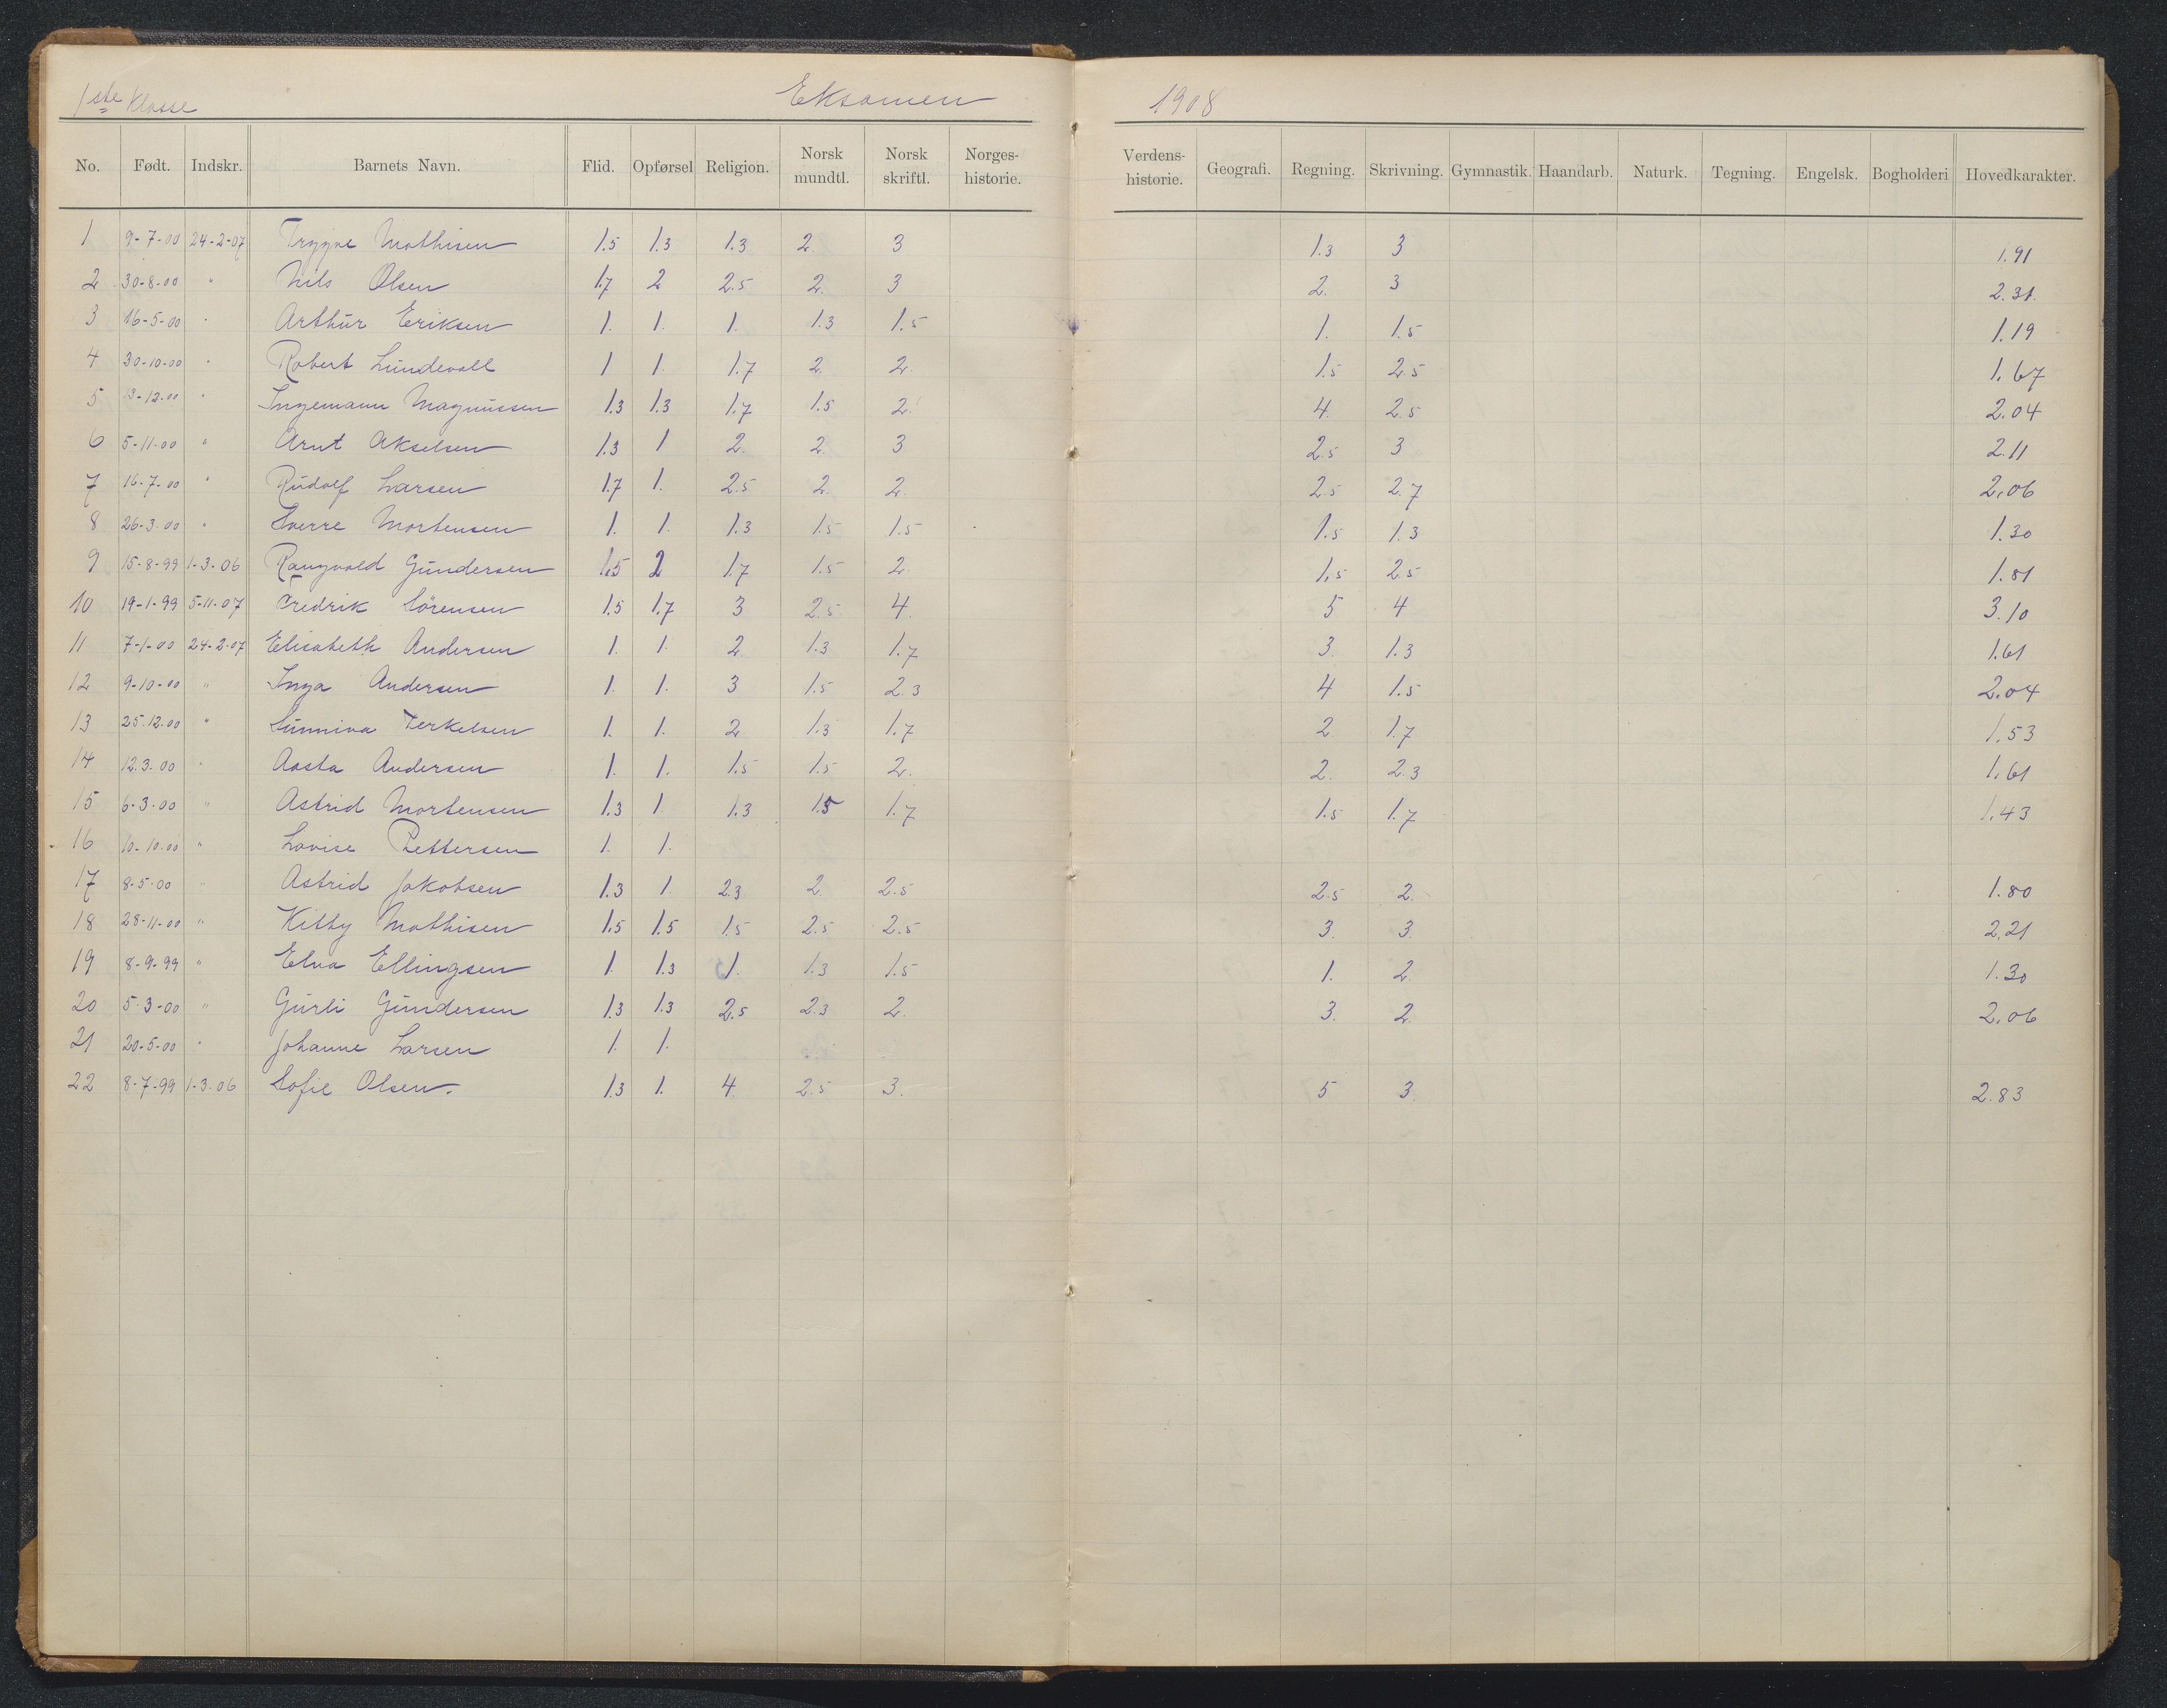 1ste Klasse Eksamen 1908
No. Født. Indskr. Barnets Navn. Flid. Opførsel Religion. Norsk mundtl. Norsk skriftl. Norges-historie. Verdens-historie. Geografi. Regning. Skrivning. Gymnastik. Haandarb. Naturk. Tegning. Engelsk. Bogholderi Hovedkarakter.
1 9-7-00 24-2-07 Trygve Mathisen 1.5 1.3 1.3 2. 3 1.3 3 1.91
2 30-8-00 " Nils Olsen 1.7 2 2.5 2. 3 2. 3 2.31.
3 16-5-00 " Arthur Eriksen 1. 1. 1. 1.3 1.5 1. 1.5 1.19
4 30-10-00 " Robert Lundevall 1 1. 1.7 2. 2. 1.5 2.5 1.67
5 13-12-00 " Ingemann Magnussen 1.3 1.3 1.7 1.5 2. 4. 2.5 2.04
6 5-11-00 " Arnt Akselsen 1.3 1 2. 2. 3 2.5 3 2.11
7 16-7-00 " Rudolf Larsen 1.7 1. 2.5 2. 2. 2.5 2.7 2.06
8 26-3-00 " Sverre Mortensen 1. 1. 1.3 1.5 1.5 1.5 1.3 1.30
9 15-8-99 1-3-06 Rangvald Gundersen 1.5 2 1.7 1.5 2. 1.5 2.5 1.81
10 19-1-99 5-11-07 Fredrik Sörensen 1.5 1.7 3 2.5 4. 5 4 3.10
11 7-1-00 24-2-07 Elisabeth Andersen 1. 1. 2 1.3 1.7 3. 1.3 1.61
12 9-10-00 " Inga Andersen 1. 1. 3 1.5 2.3 4 1.5 2.04
13 25.12.00 " Sunniva Terkelsen 1. 1. 2 1.3 1.7 2 1.7 1.53
14 12.3.00 " Aasta Andersen 1. 1. 1.5 1.5 2. 2. 2.3 1.61
15 6-3-00 " Astrid Mortensen 1.3 1. 1.3 1.5 1.7 1.5 1.7 1.43
16 10-10-00 " Lovise Pettersen 1. 1.
17 8-5-00 " Astrid Jakobsen 1.3 1. 2.3 2. 2.5 2.5 2. 1.80
18 28-11-00 " Kitty Mathisen 1.5 1.5 1.5 2.5 2.5 3. 3. 2.21
19 8-9-99 " Elna Ellingsen 1. 1.3 1. 1.3 1.5 1. 2. 1.30
20 5-3-00 " Gurli Gundersen 1.3 1.3 2.5 2.3 2. 3. 2. 2.06
21 20-5-00 " Johanne Larsen 1. 1.
22 8-7-99 1-3-06 Sofie Olsen. 1.3 1. 4. 2.5 3. 5 3. 2.83